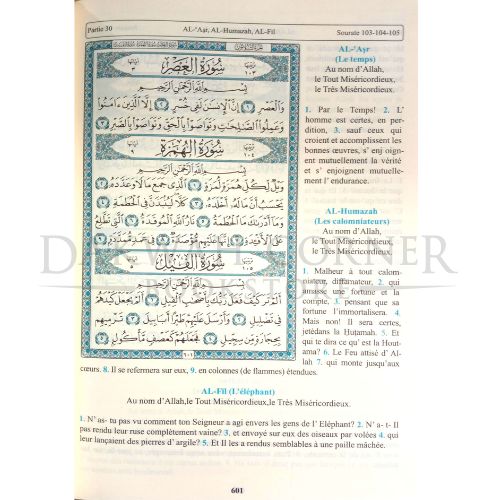 Partie 30
AL-'Aşr, AL-Humazah, AL-Fil
Sourate 103-104-105
سُورَةُ العَصْرِ
بِسْمِ اللَّهِ الرَّحْمَٰنِ الرَّحِيمِ
وَالْعَصْرِ ١ إِنَّ الْإِنسَانَ لَفِي خُسْرٍ ٢ إِلَّا الَّذِينَ آمَنُوا
وَعَمِلُوا الصَّالِحَاتِ وَتَوَاصَوْا بِالْحَقِّ وَتَوَاصَوْا بِالصَّبْرِ ٣
سُورَةُ الهُمَزَةِ
بِسْمِ اللَّهِ الرَّحْمَٰنِ الرَّحِيمِ
وَيْلٌ لِّكُلِّ هُمَزَةٍ لُّمَزَةٍ ١ الَّذِي جَمَعَ مَالًا وَعَدَّدَهُ ٢
يَحْسَبُ أَنَّ مَالَهُ أَخْلَدَهُ ٣ كَلَّا لَيُنبَذَنَّ فِي الْحُطَمَةِ ٤
وَمَا أَدْرَاكَ مَا الْحُطَمَةُ ٥ نَارُ اللَّهِ الْمُوقَدَةُ ٦ الَّتِي تَطَّلِعُ
عَلَى الْأَفْئِدَةِ ٧ إِنَّهَا عَلَيْهِم مُّؤْصَدَةٌ ٨ فِي عَمَدٍ مُّمَدَّدَةٍ ٩
سُورَةُ الفِيلِ
بِسْمِ اللَّهِ الرَّحْمَٰنِ الرَّحِيمِ
أَلَمْ تَرَ كَيْفَ فَعَلَ رَبُّكَ بِأَصْحَابِ الْفِيلِ ١ أَلَمْ يَجْعَلْ كَيْدَهُمْ
فِي تَضْلِيلٍ ٢ وَأَرْسَلَ عَلَيْهِمْ طَيْرًا أَبَابِيلَ ٣ تَرْمِيهِم
بِحِجَارَةٍ مِّن سِجِّيلٍ ٤ فَجَعَلَهُمْ كَعَصْفٍ مَّأْكُولٍ ٥
٦٠١
AL-'Aşr
(Le temps)
Au nom d'Allah,
le Tout Miséricordieux,
le Très Miséricordieux.
1. Par le Temps! 2. L'
homme est certes, en per-
dition, 3. sauf ceux qui
croient et accomplissent les
bonnes œuvres, s' enj oignt
ent mutuellement la vérité
et s' enjoignent mutuelle-
ment l' endurance.
AL-Humazah
(Les calomniateurs)
Au nom d'Allah,
le Tout Miséricordieux,
le Très Miséricordieux.
1. Malheur à tout calom-
niateur, diffamateur, 2. qui
amasse une fortune et la
compte, 3. pensant que sa
fortune l'immortalisera. 4.
Mais non! Il sera certes,
jetédans la Huṭamah. 5. Et
qui te dira ce qu' est la Hout-
ama? 6. Le Feu attisé d' Al-
lah 7. qui monte jusqu'aux
cœurs. 8. Il se refermera sur eux, 9. en colonnes (de flammes) étendues.
AL-Fîl (L'éléphant)
Au nom d'Allah,le Tout Miséricordieux,le Très Miséricordieux.
1. N' as- tu pas vu comment ton Seigneur a agi envers les gens de l' Eléphant? 2. N' a- t- Il
pas rendu leur ruse complètement vaine? 3. et envoyé sur eux des oiseaux par volées 4. qui
leur lançaient des pierres d' argile? 5. Et Il les a rendus semblables à une paille mâchée.
601